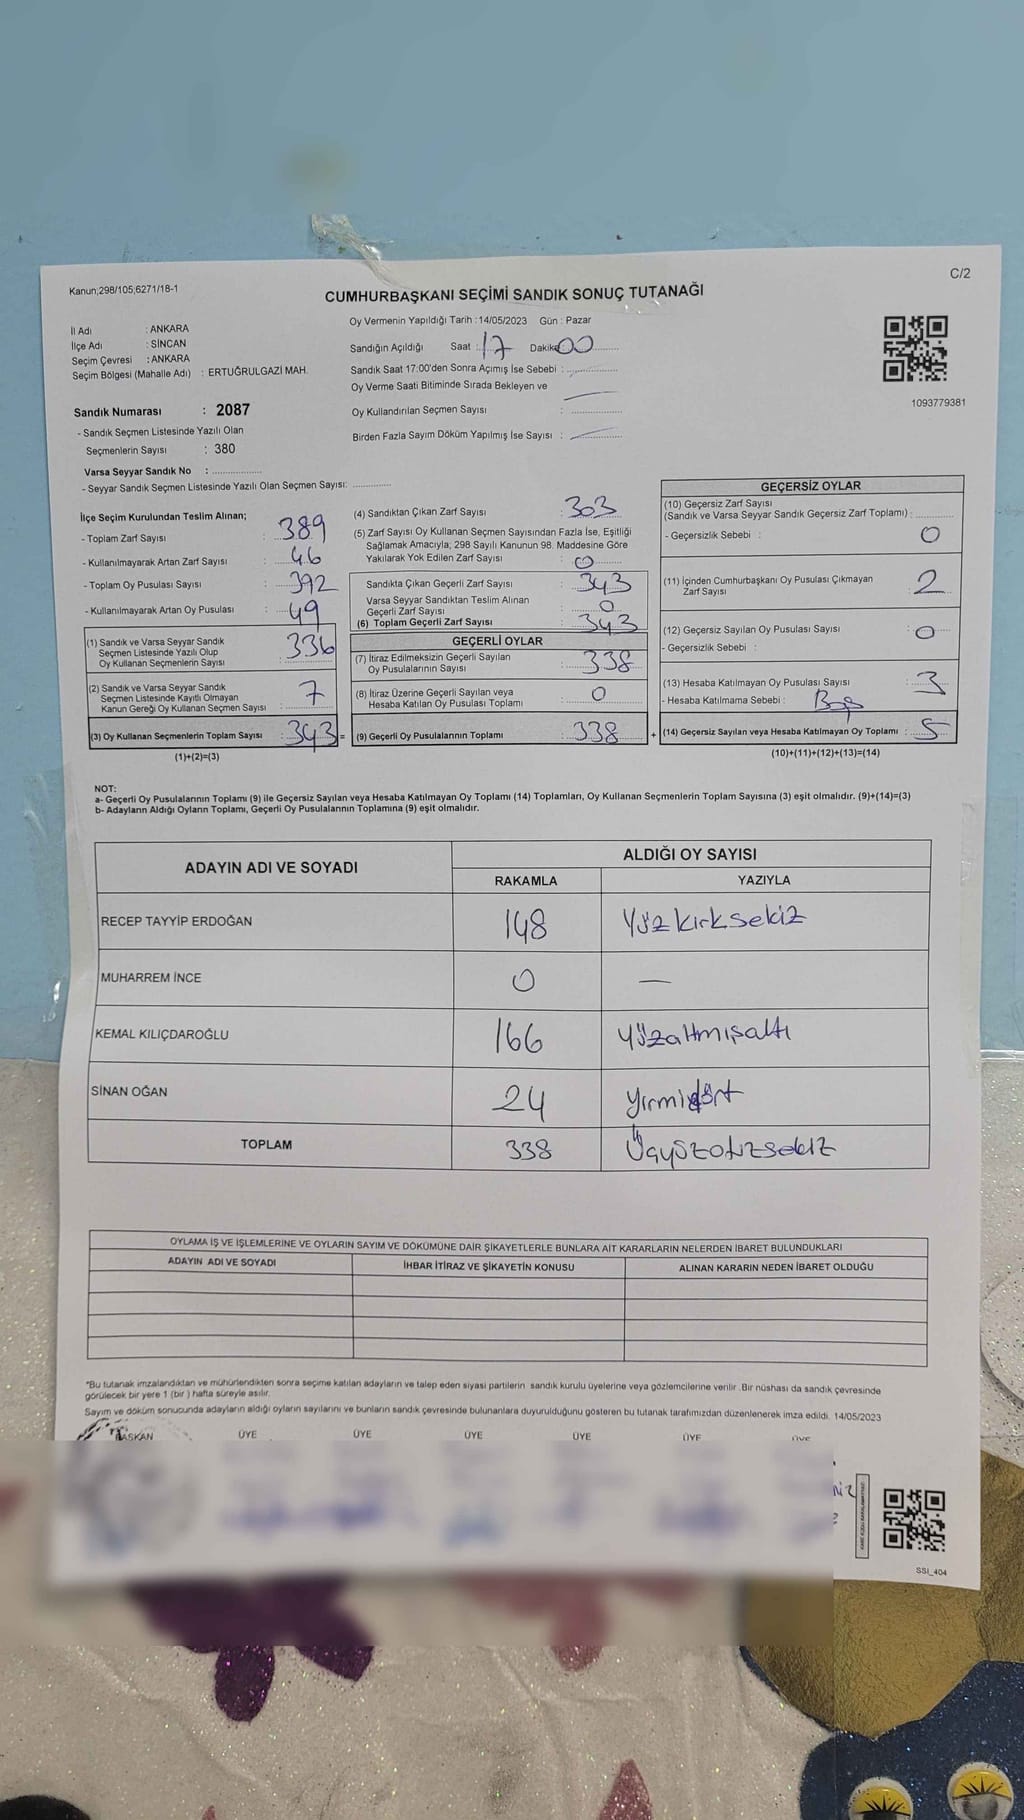 Kanun;298/105,6271/18-1
C/2
CUMHURBAŞKANI SEÇİMİ SANDIK SONUÇ TUTANAĞI
İl Adı : ANKARA
İlçe Adı : SİNCAN
Seçim Çevresi : ANKARA
Seçim Bölgesi (Mahalle Adı) : ERTUĞRULGAZİ MAH.
Sandık Numarası : 2087
- Sandık Seçmen Listesinde Yazılı Olan
Seçmenlerin Sayısı : 380
Varsa Seyyar Sandık No : ..................
- Seyyar Sandık Seçmen Listesinde Yazılı Olan Seçmen Sayısı: ..............
Oy Vermenin Yapıldığı Tarih :14/05/2023 Gün : Pazar
Sandığın Açıldığı Saat : 17 Dakika: 00
Sandık Saat 17:00'den Sonra Açımış İse Sebebi :
Oy Verme Saati Bitiminde Sırada Bekleyen ve
Oy Kullandırılan Seçmen Sayısı :
Birden Fazla Sayım Döküm Yapılmış İse Sayısı :
1093779381
İlçe Seçim Kurulundan Teslim Alınan;
- Toplam Zarf Sayısı : 389
- Kullanılmayarak Artan Zarf Sayısı : 46
- Toplam Oy Pusulası Sayısı : 392
- Kullanılmayarak Artan Oy Pusulası : 49
(1) Sandık ve Varsa Seyyar Sandık
Seçmen Listesinde Yazılı Olup
Oy Kullanan Seçmenlerin Sayısı : 336
(2) Sandık ve Varsa Seyyar Sandık
Seçmen Listesinde Kayıtlı Olmayan
Kanun Gereği Oy Kullanan Seçmen Sayısı : 7
(3) Oy Kullanan Seçmenlerin Toplam Sayısı : 343 =
(1)+(2)=(3)
(4) Sandıktan Çıkan Zarf Sayısı : 303
(5) Zarf Sayısı Oy Kullanan Seçmen Sayısından Fazla İse, Eşitliği
Sağlamak Amacıyla, 298 Sayılı Kanunun 98. Maddesine Göre
Yakılarak Yok Edilen Zarf Sayısı : 0
Sandıkta Çıkan Geçerli Zarf Sayısı : 343
Varsa Seyyar Sandıktan Teslim Alınan
Geçerli Zarf Sayısı : 0
(6) Toplam Geçerli Zarf Sayısı : 343
GEÇERLİ OYLAR
(7) İtiraz Edilmeksizin Geçerli Sayılan
Oy Pusulalarının Sayısı : 338
(8) İtiraz Üzerine Geçerli Sayılan veya
Hesaba Katılan Oy Pusulası Toplamı : 0
(9) Geçerli Oy Pusulalarının Toplamı : 338 +
GEÇERSİZ OYLAR
(10) Geçersiz Zarf Sayısı
(Sandık ve Varsa Seyyar Sandık Geçersiz Zarf Toplamı) :
- Geçersizlik Sebebi : 0
(11) İçinden Cumhurbaşkanı Oy Pusulası Çıkmayan
Zarf Sayısı : 2
(12) Geçersiz Sayılan Oy Pusulası Sayısı : 0
- Geçersizlik Sebebi :
(13) Hesaba Katılmayan Oy Pusulası Sayısı : 3
- Hesaba Katılmama Sebebi : Boş
(14) Geçersiz Sayılan veya Hesaba Katılmayan Oy Toplamı : 5
(10)+(11)+(12)+(13)=(14)
NOT:
a- Geçerli Oy Pusulalarının Toplamı (9) ile Geçersiz Sayılan veya Hesaba Katılmayan Oy Toplamı (14) Toplamları, Oy Kullanan Seçmenlerin Toplam Sayısına (3) eşit olmalıdır. (9)+(14)=(3)
b- Adayların Aldığı Oyların Toplamı, Geçerli Oy Pusulalarının Toplamına (9) eşit olmalıdır.
ADAYIN ADI VE SOYADI ALDIĞI OY SAYISI
RAKAMLA YAZIYLA
RECEP TAYYİP ERDOĞAN 148 Yüzkırksekiz
MUHARREM İNCE 0 —
KEMAL KILIÇDAROĞLU 166 Yüzaltmışaltı
SİNAN OĞAN 24 yirmidört
TOPLAM 338 Üçyüzotuzsekiz
OYLAMA İŞ VE İŞLEMLERİNE VE OYLARIN SAYIM VE DÖKÜMÜNE DAİR ŞİKAYETLERLE BUNLARA AİT KARARLARIN NELERDEN İBARET BULUNDUKLARI
ADAYIN ADI VE SOYADI İHBAR İTİRAZ VE ŞİKAYETİN KONUSU ALINAN KARARIN NEDEN İBARET OLDUĞU
*Bu tutanak imzalandıktan ve mühürlendikten sonra seçime katılan adayların ve talep eden siyasi partilerin sandık kurulu üyelerine veya gözlemcilerine verilir .Bir nüshası da sandık çevresinde
görülecek bir yere 1 (bir ) hafta süreyle asılır.
Sayım ve döküm sonucunda adayların aldığı oyların sayılarını ve bunların sandık çevresinde bulunanlara duyurulduğunu gösteren bu tutanak tarafımızdan düzenlenerek imza edildi. 14/05/2023
BAŞKAN ÜYE ÜYE ÜYE ÜYE ÜYE ÜYE
SSI_404